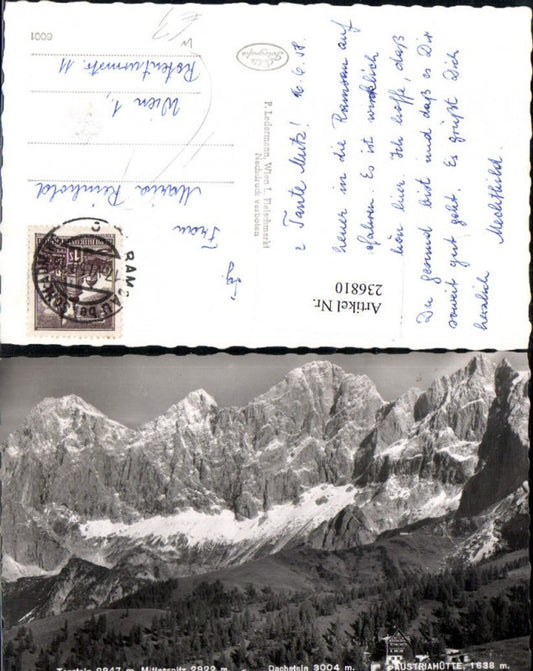 16.6.58.
Tante Mutz!
heuer in die Ramsau auf
gfahren. Es ist wirklich
hön hier. Ich hoffe, daß
Du gesund bist und daß es Dir
soweit gut geht. Es grüßt Dich
herzlich Mechthild.
Artikel Nr.
236810
P. Ledermann, Wien I, Fleischmarkt
Nachdruck verboten
Frau
Maria Reinhold
Wien 1,
Rotenturmstr. 11
6001
RAMSAU
Torstein 2947 m. Mitterspitz 2922 m. Dachstein 3004 m. AUSTRIAHÜTTE, 1638 m.